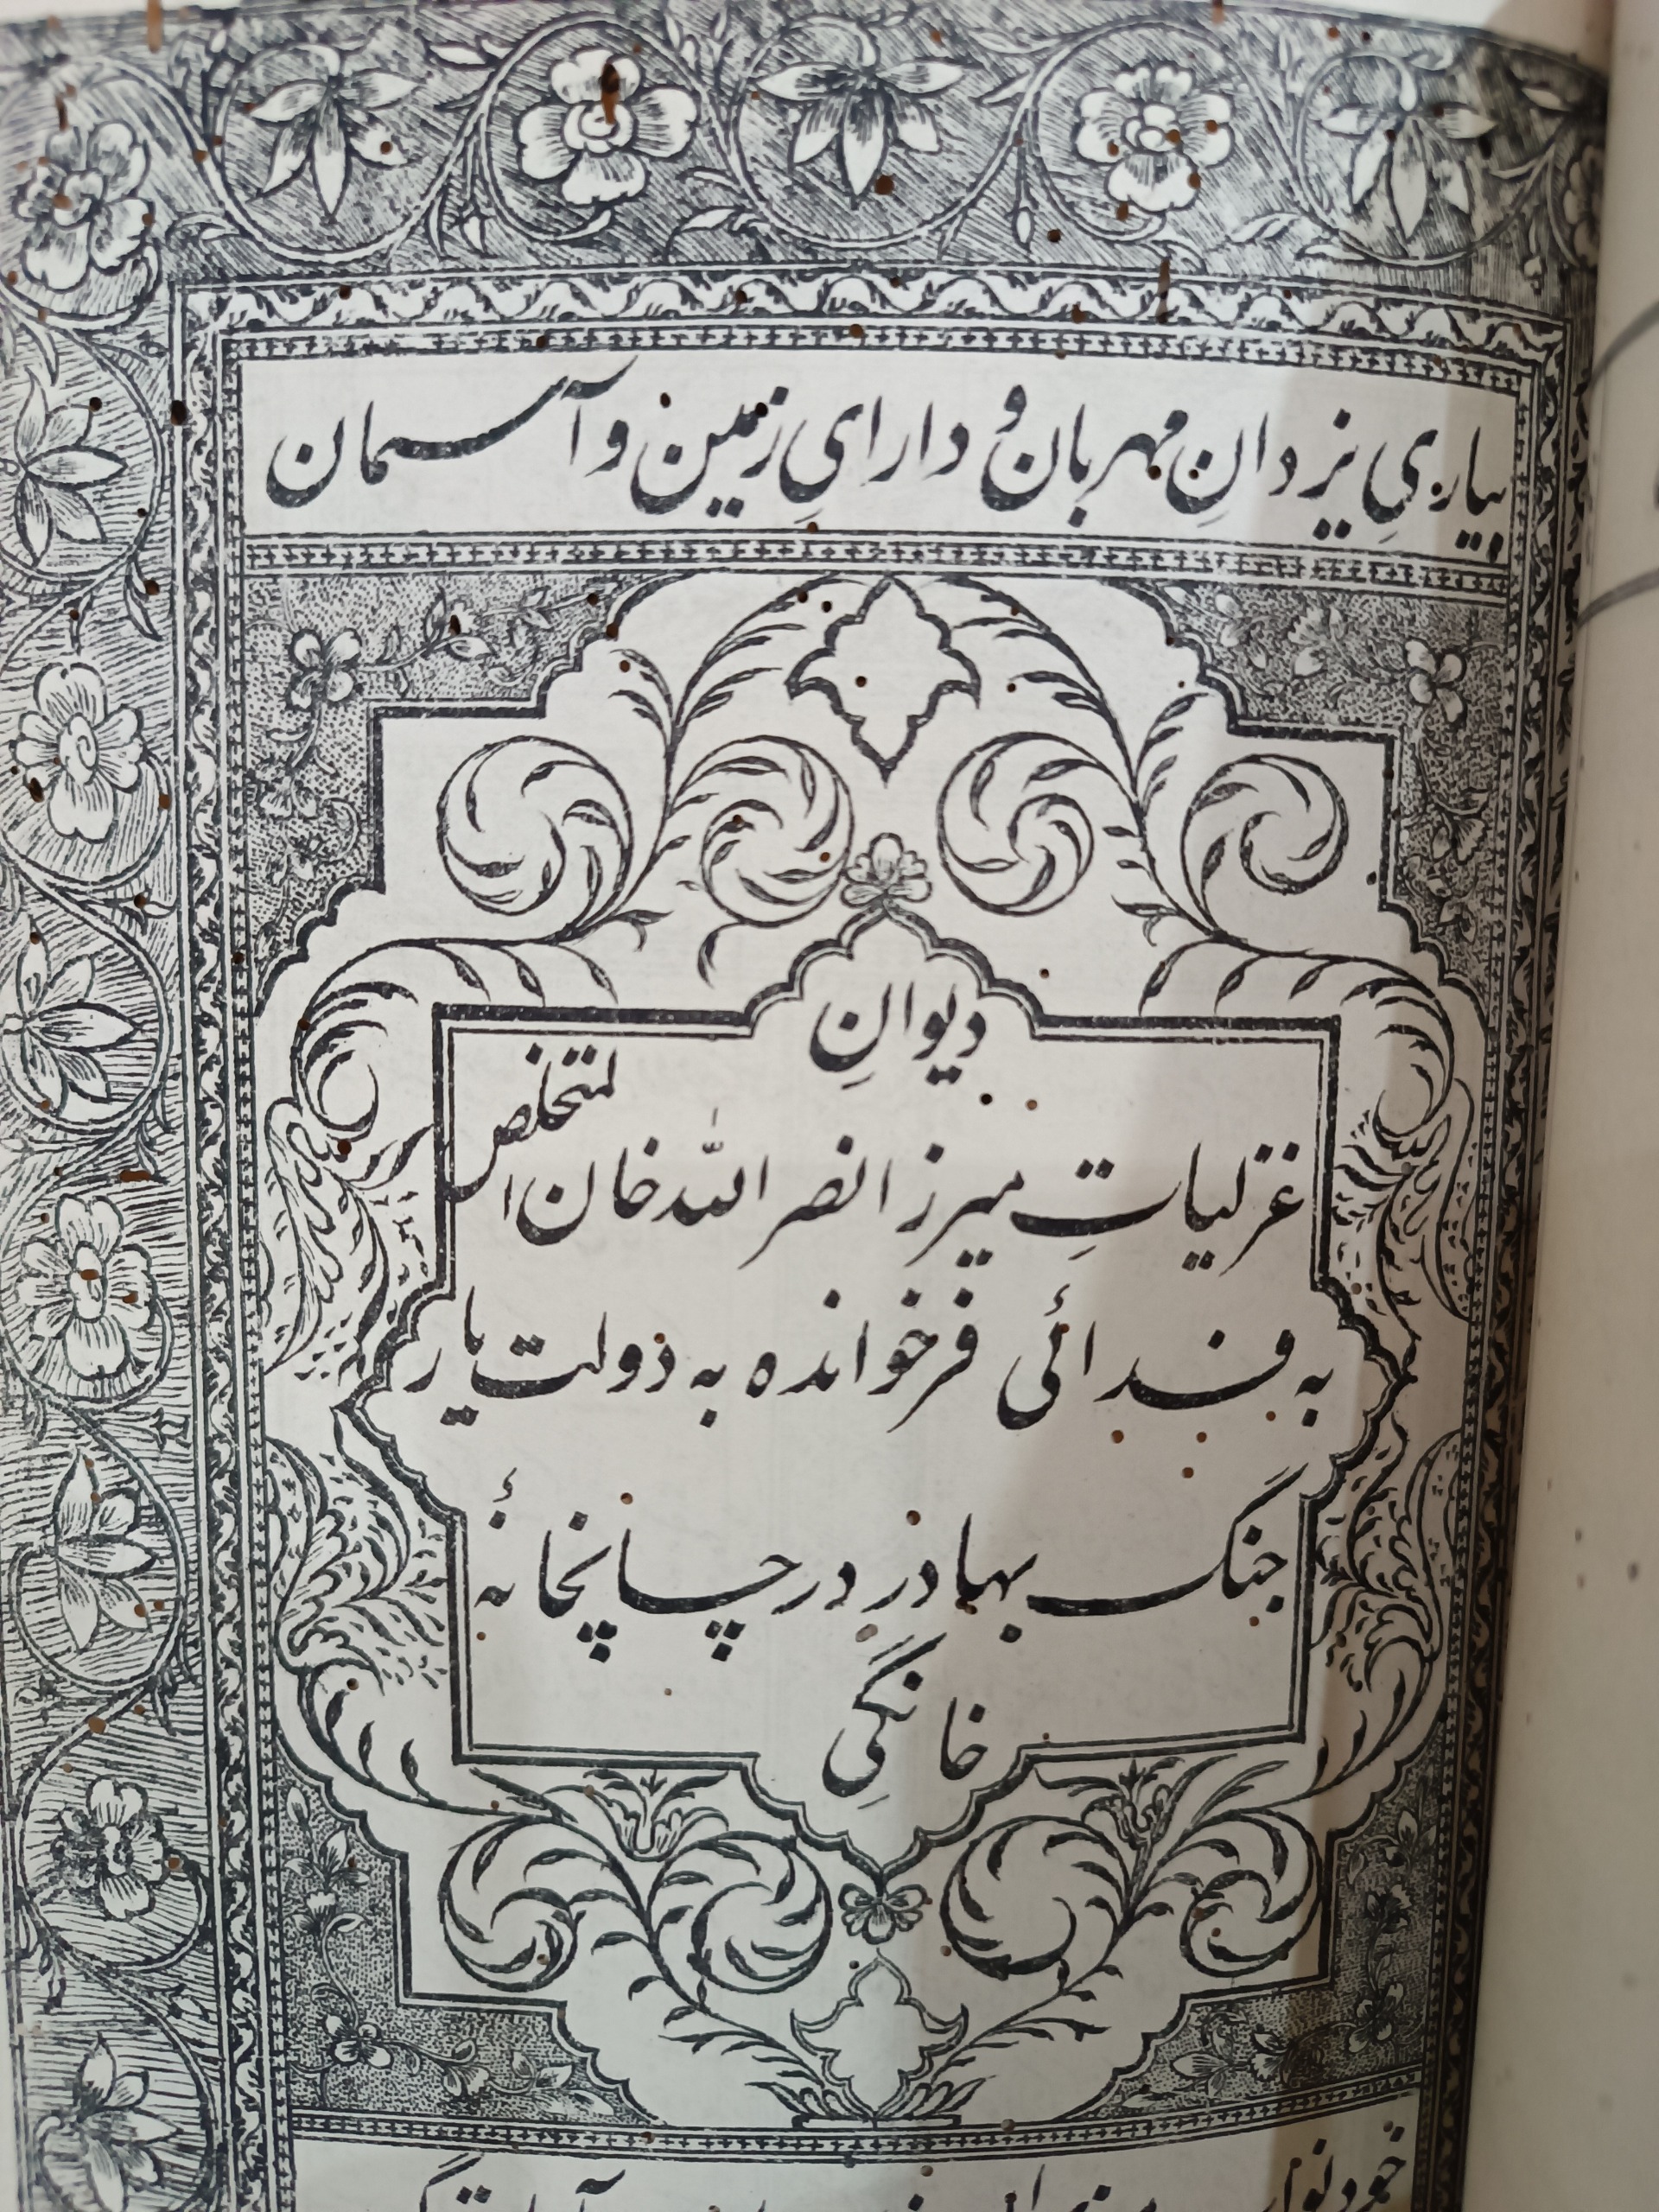 بیاریِ یزدانِ مهربان و دارایِ زمین و آسمان
دیوانِ
غزلیاتِ میرزا نصر اللّٰه خان المتخلص
به فدائی فرخوانده به دولت یار
جنگ بهادر در چاپخانهٔ
خانگیِ